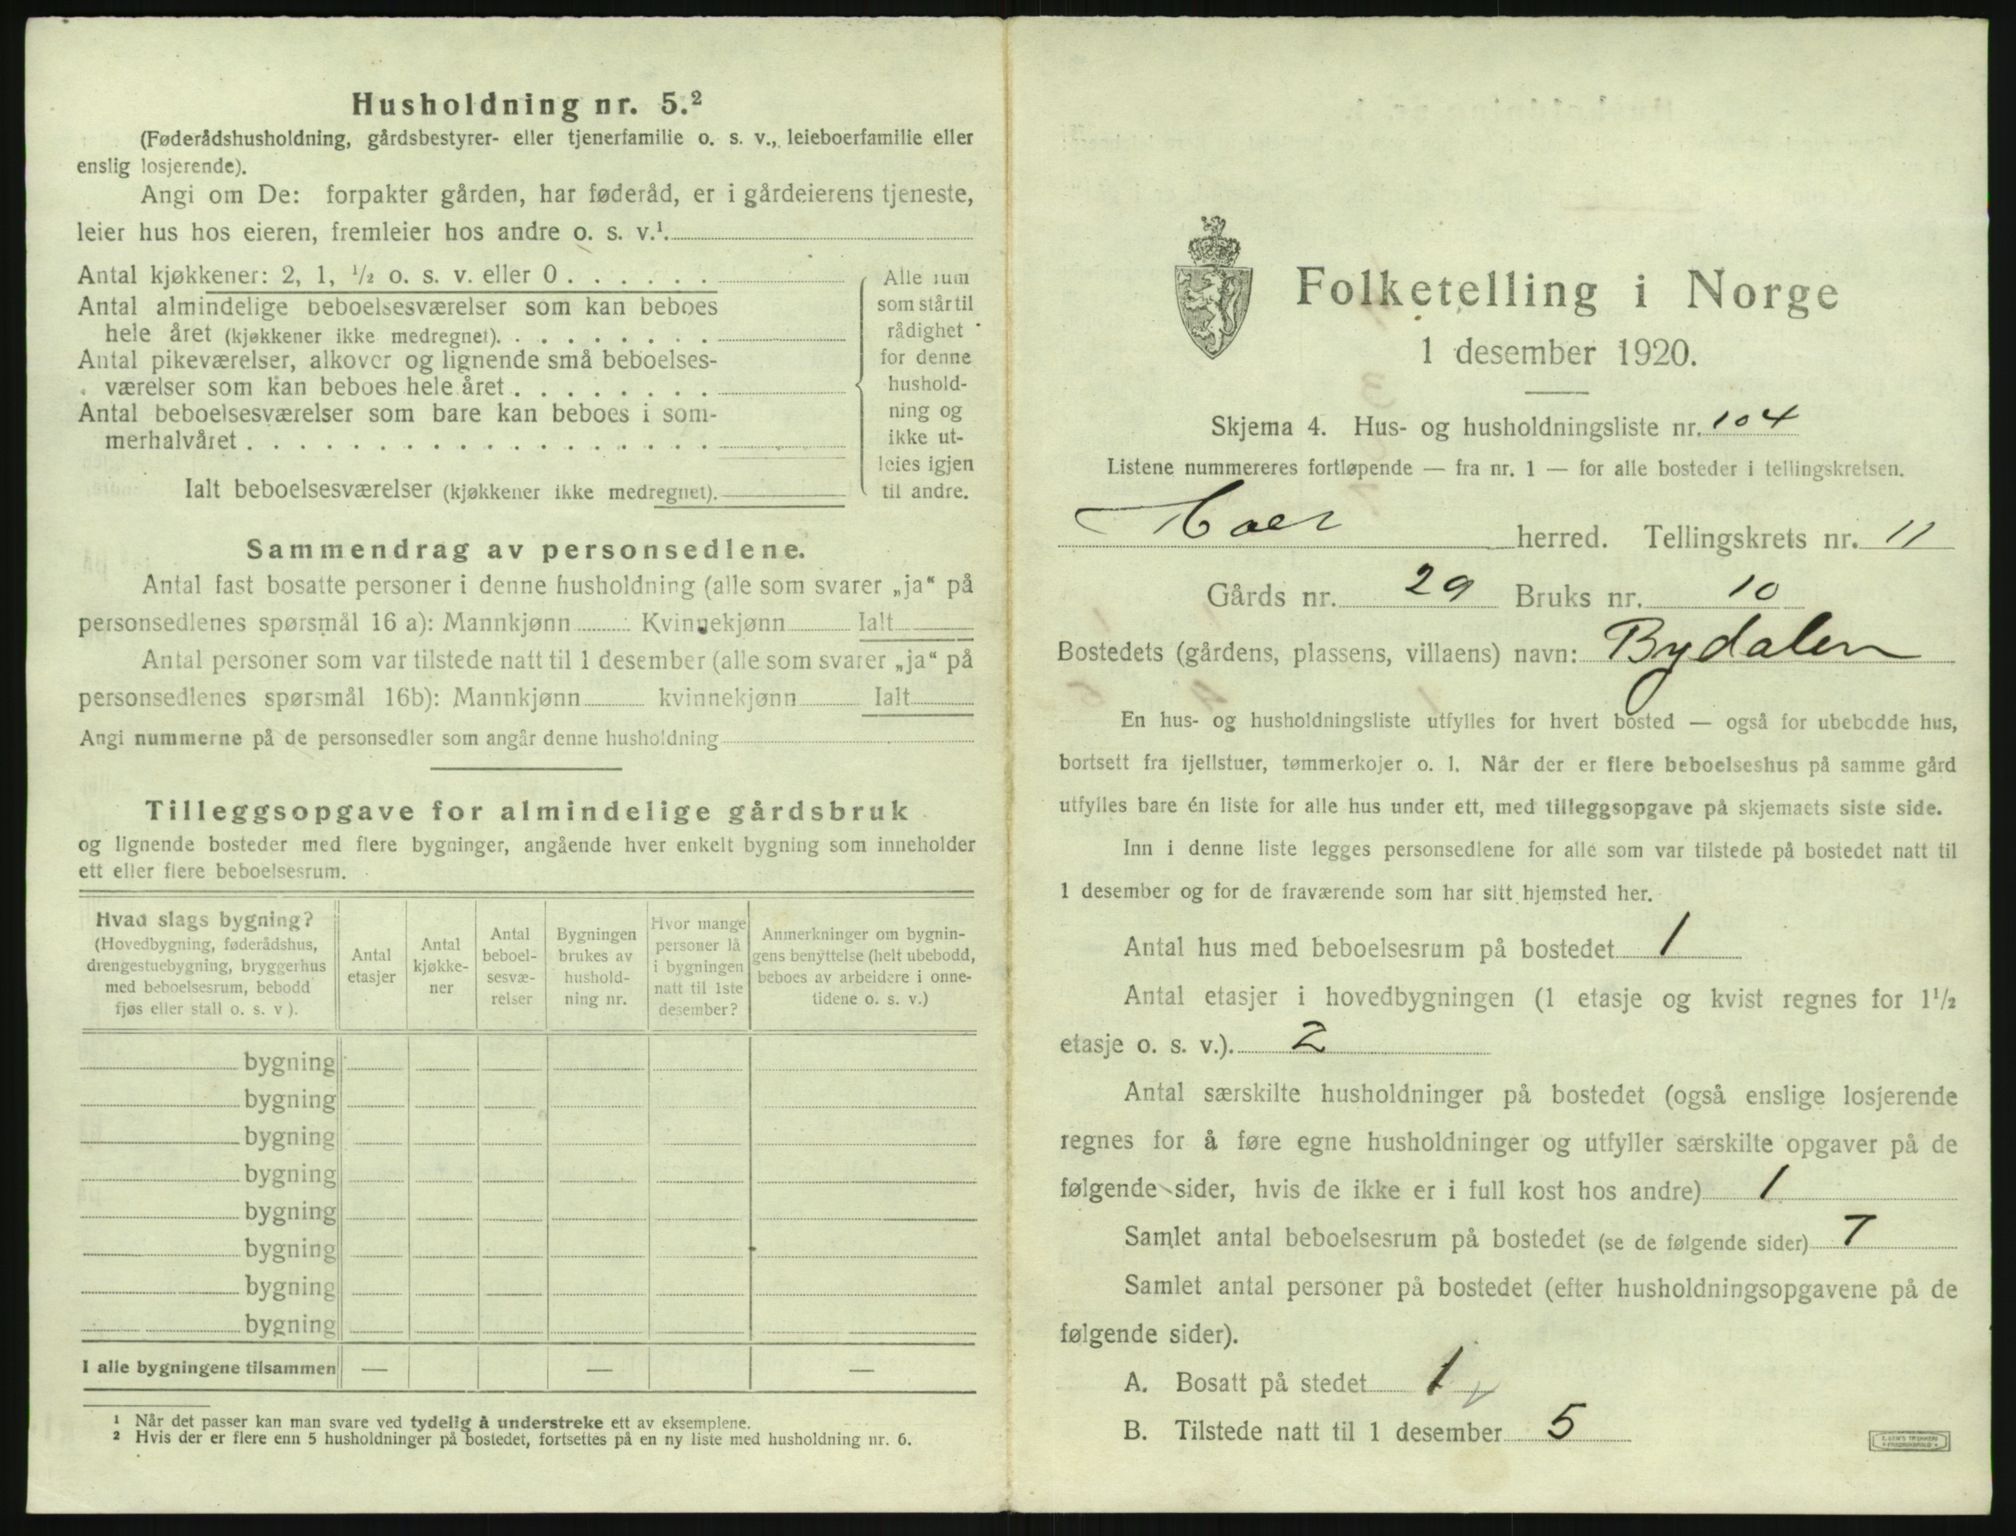 Husholdning nr. 5.²
(Føderådshusholdning, gårdsbestyrer- eller tjenerfamilie o. s. v., leieboerfamilie eller
enslig losjerende).
Angi om De: forpakter gården, har føderåd, er i gårdeierens tjeneste,
leier hus hos eieren, fremleier hos andre o. s. v.¹.
Antal kjøkkener: 2, 1, ½ o. s. v. eller 0 . . . . . .
Antal almindelige beboelsesværelser som kan beboes
hele året (kjøkkener ikke medregnet). . . . . . . . .
Antal pikeværelser, alkover og lignende små beboelses-
værelser som kan beboes hele året . . . . . . . .
Antal beboelsesværelser som bare kan beboes i som-
merhalvåret . . . . . . . . . . . . . . . . . .
Ialt beboelsesværelser (kjøkkener ikke medregnet).
Alle rum
som står til
rådighet
for denne
hushold-
ning og
ikke ut-
leies igjen
til andre.
Sammendrag av personsedlene.
Antal fast bosatte personer i denne husholdning (alle som svarer „ja“ på
personsedlenes spørsmål 16 a): Mannkjønn Kvinnekjønn Ialt
Antal personer som var tilstede natt til 1 desember (alle som svarer „ja“ på
personsedlenes spørsmål 16b): Mannkjønn kvinnekjønn Ialt
Angi nummerne på de personsedler som angår denne husholdning
Tilleggsopgave for almindelige gårdsbruk
og lignende bosteder med flere bygninger, angående hver enkelt bygning som inneholder
ett eller flere beboelsesrum.
Hvad slags bygning?
(Hovedbygning, føderådshus,
drengestuebygning, bryggerhus
med beboelsesrum, bebodd
fjøs eller stall o. s. v ).
Antal
etasjer
Antal
kjøkke-
ner
Antal
beboel-
sesvæ-
relser
Bygningen
brukes av
hushold-
ning nr.
Hvor mange
personer lå
i bygningen
natt til 1ste
desember?
Anmerkninger om bygnin-
gens benyttelse (helt ubebodd,
beboes av arbeidere i onne-
tidene o. s. v.)
bygning
bygning
bygning
bygning
bygning
bygning
bygning
bygning
I alle bygningene tilsammen — — —
¹ Når det passer kan man svare ved tydelig å understreke ett av eksemplene.
² Hvis der er flere enn 5 husholdninger på bostedet, fortsettes på en ny liste med husholdning nr. 6.
Folketelling i Norge
1 desember 1920.
Skjema 4. Hus- og husholdningsliste nr. 104
Listene nummereres fortløpende — fra nr. 1 — for alle bosteder i tellingskretsen.
herred. Tellingskrets nr. 11
Gårds nr. 29 Bruks nr. 10
Bostedets (gårdens, plassens, villaens) navn: Bydalen
En hus- og husholdningsliste utfylles for hvert bosted — også for ubebodde hus,
bortsett fra fjellstuer, tømmerkojer o. l. Når der er flere beboelseshus på samme gård
utfylles bare én liste for alle hus under ett, med tilleggsopgave på skjemaets siste side.
Inn i denne liste legges personsedlene for alle som var tilstede på bostedet natt til
1 desember og for de fraværende som har sitt hjemsted her.
Antal hus med beboelsesrum på bostedet 1
Antal etasjer i hovedbygningen (1 etasje og kvist regnes for 1½
etasje o. s. v.). 2
Antal særskilte husholdninger på bostedet (også enslige losjerende
regnes for å føre egne husholdninger og utfyller særskilte opgaver på de
følgende sider, hvis de ikke er i full kost hos andre) 1
Samlet antal beboelsesrum på bostedet (se de følgende sider) 7
Samlet antal personer på bostedet (efter husholdningsopgavene på de
følgende sider).
A. Bosatt på stedet 1
B. Tilstede natt til 1 desember 5